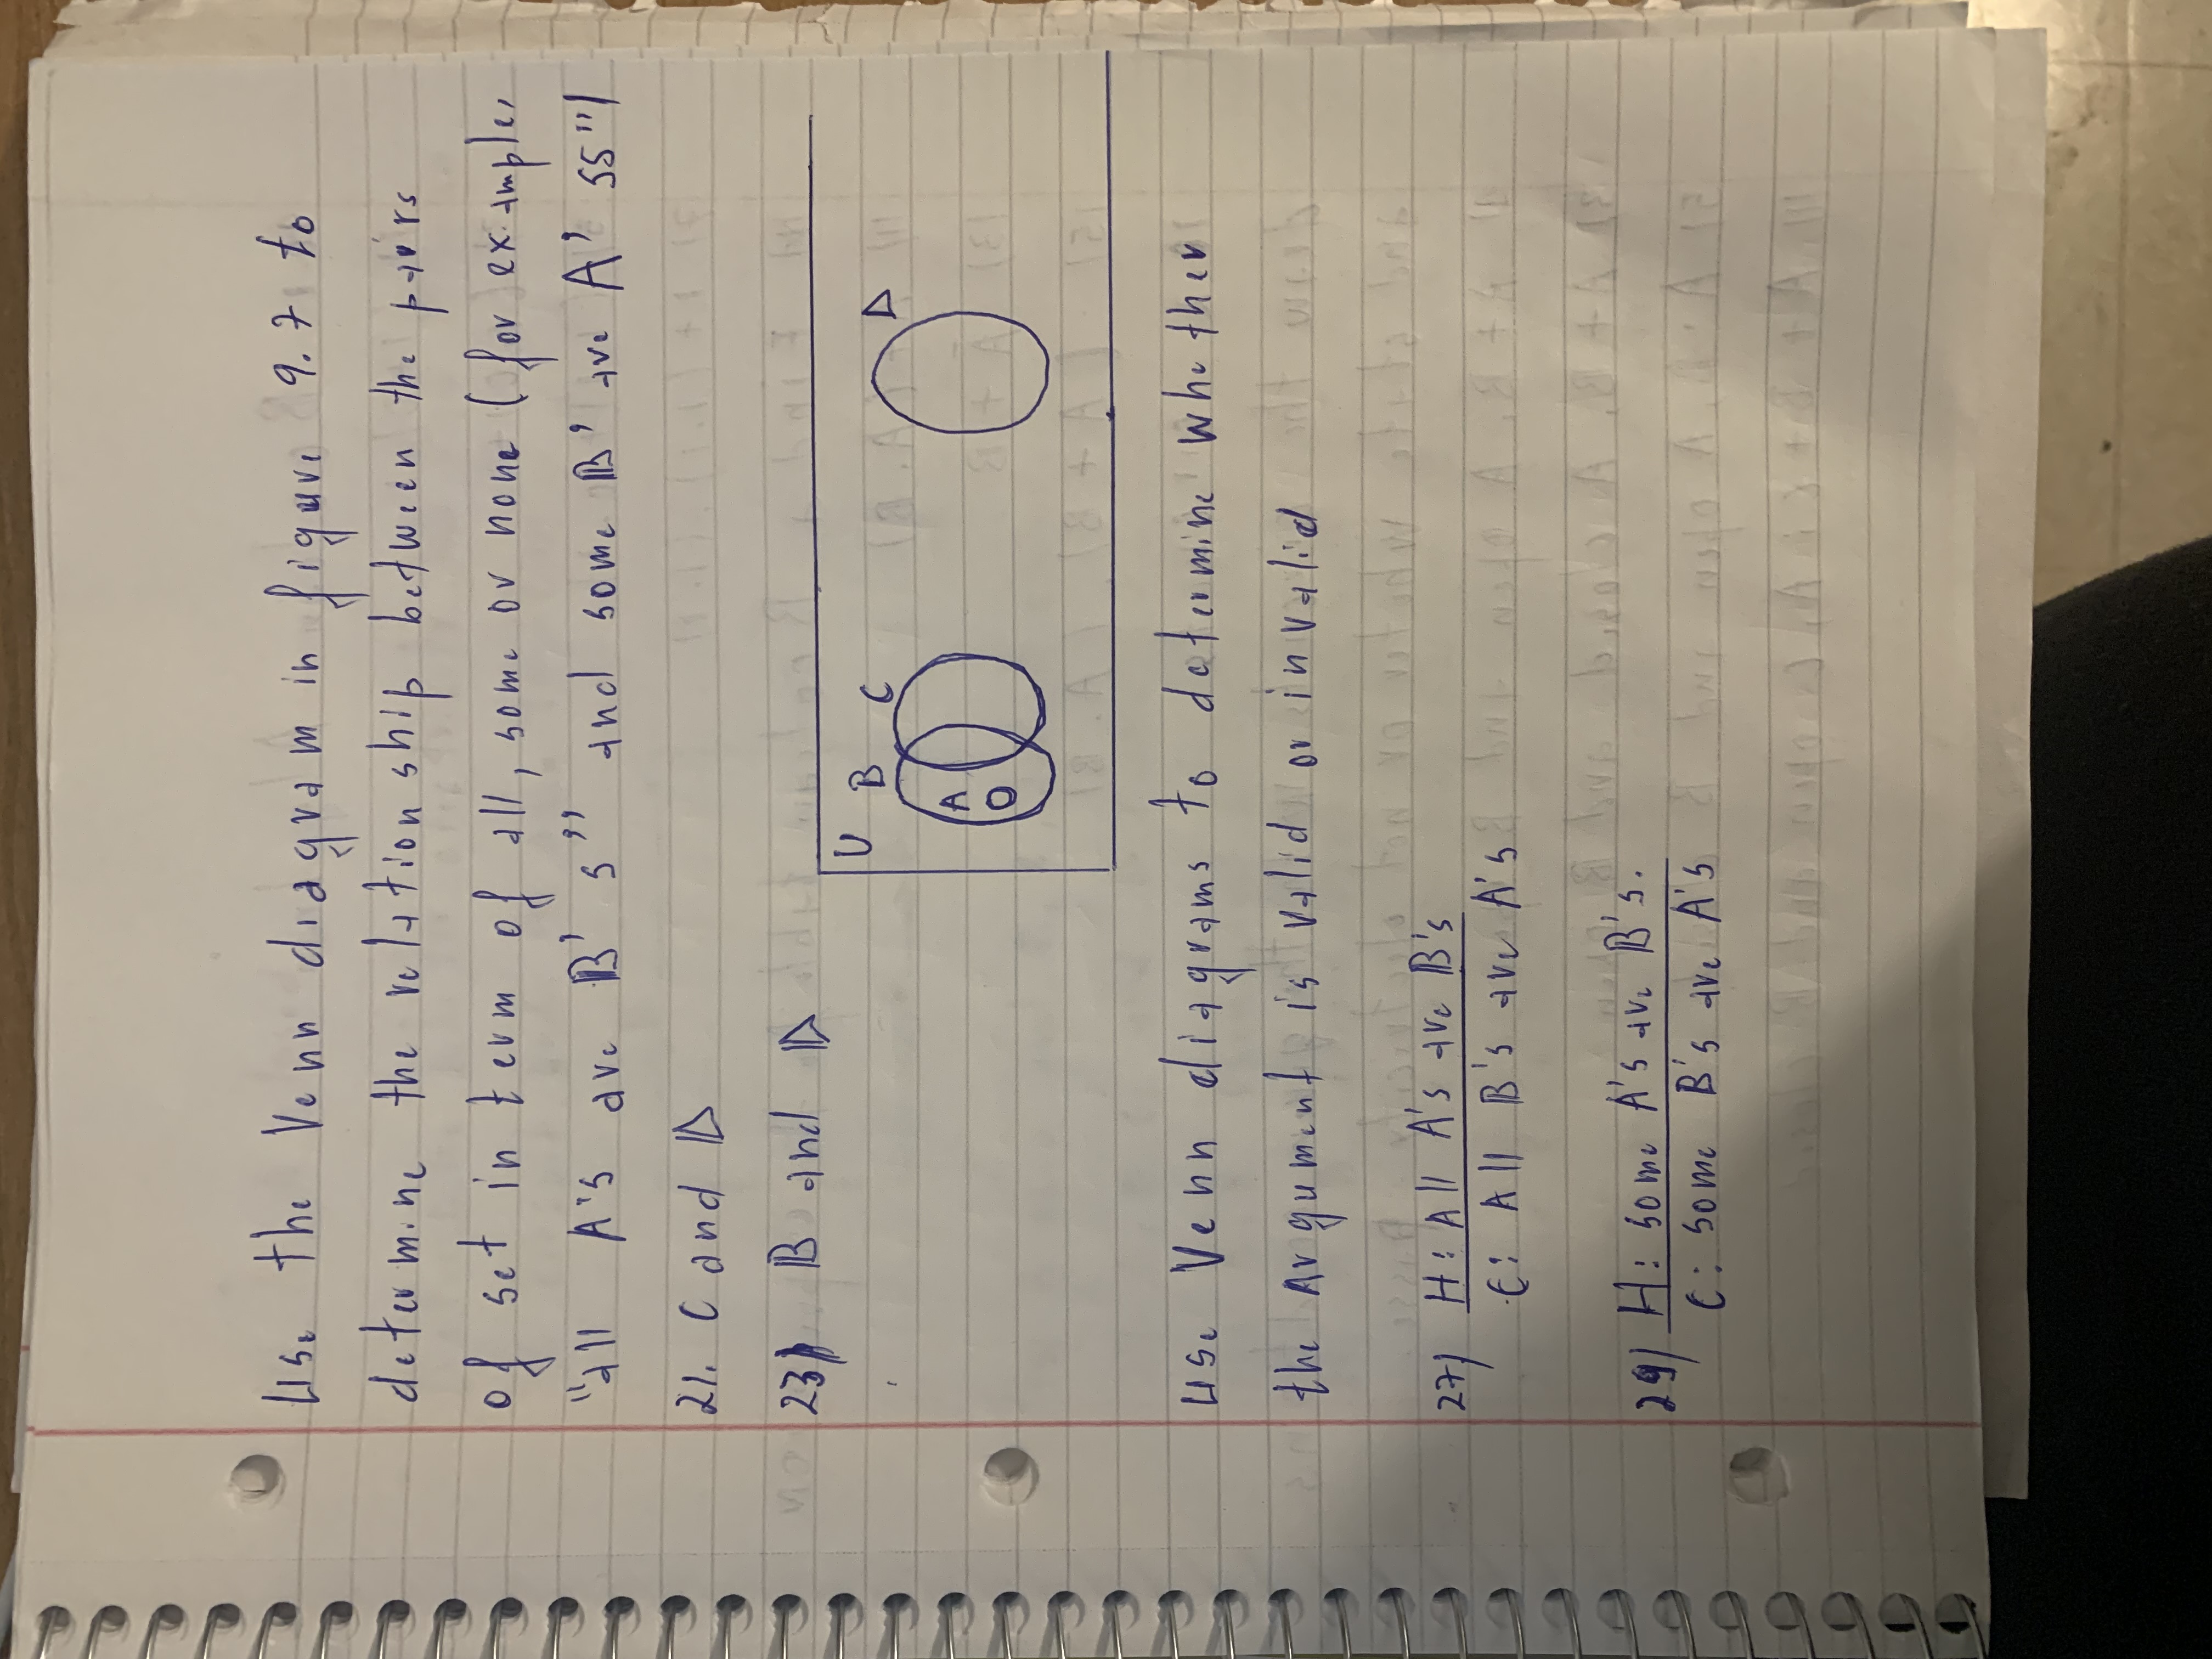 Use the Venn diagram in figure 9.7 to
determine the relationship between the pairs
of set in term of all, some or none (for example,
"all A's are B's" and some B' are A' ss")
21. C and D
23) B and D
U B C D
A
Use Venn diagrams to determine whether
the Argument is valid or invalid
27) H: All A's are B's
C: All B's are A's
29) H: some A's are B's.
C: some B's are A's